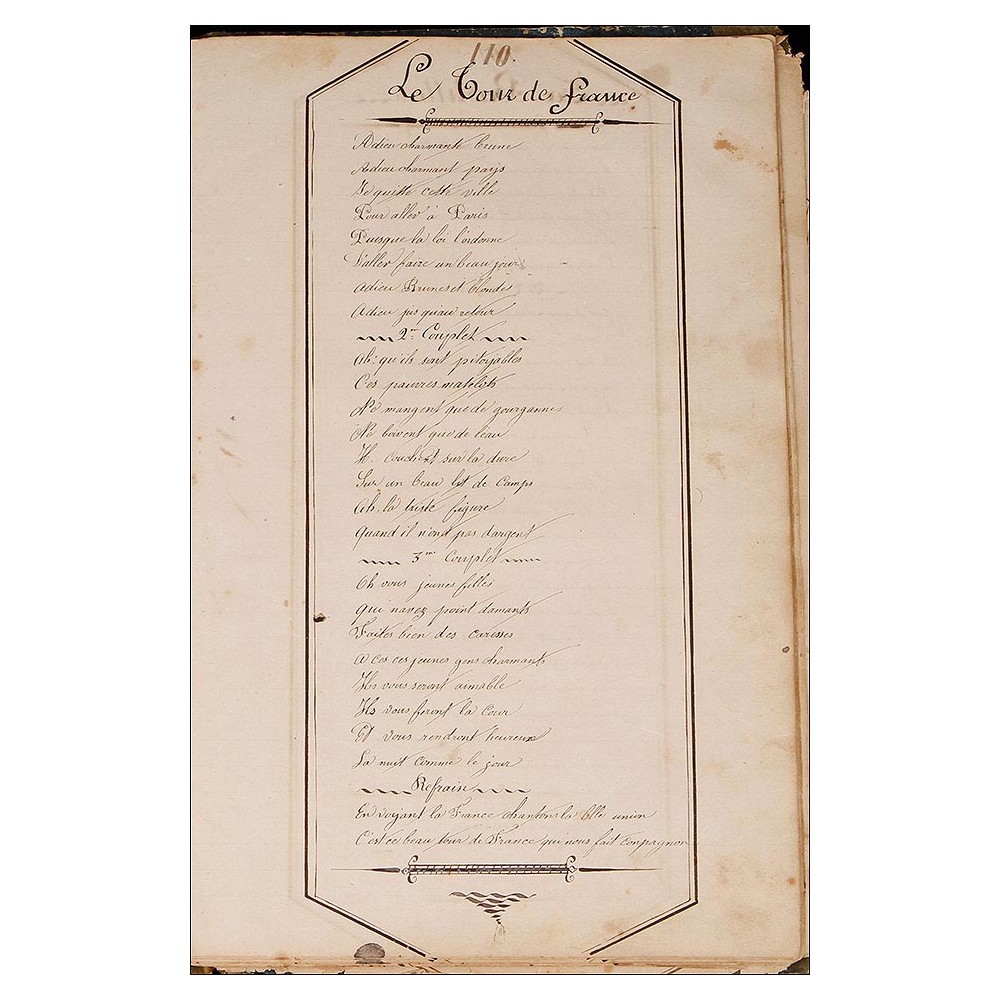 110.
Le Tour de france
Adieu charmante brune
Adieu charmant pays
Je quitte cette ville
Pour aller à Paris
Puisque la loi l'ordonne
D'aller faire un beau jour
Adieu Brunes et blondes
Adieu jusquau retour
2me Couplet
Ah: qu'ils sont pitoyables
Ces pauvres matelots
Ne mangent que de gourgannes
Ne boivent que de l'eau
couchent sur la dure
Sur un beau lit de Camps
Ah. la triste figure
Quand il n'ond pas d'argent
3me Couplet
Oh vous jeunes filles
qui navez point damants
Faites bien des caresses
A ces ces jeunes gens charmants
Ils vous seront aimable
Ils vous feront la Cour
Et vous rendront heureux
La nuit comme le jour
Refrain
En voyant la France chantons la blle union
C'est ce beau tour de France qui nous fait conpagnon